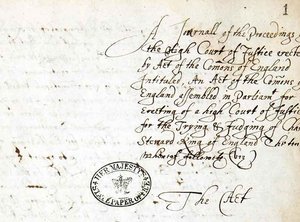 1
A Journall of the Proceedings of
the High Court of Justice erected
by Act of the Comons of England
Intituled An Act of the Comons of
England assembled in Parliamt for
erecting of a high Court of Justice
for the Trying & Judging of Charles
Steward King of England
The Act
HER MAJESTY'S
STATE PAPER OFFICE